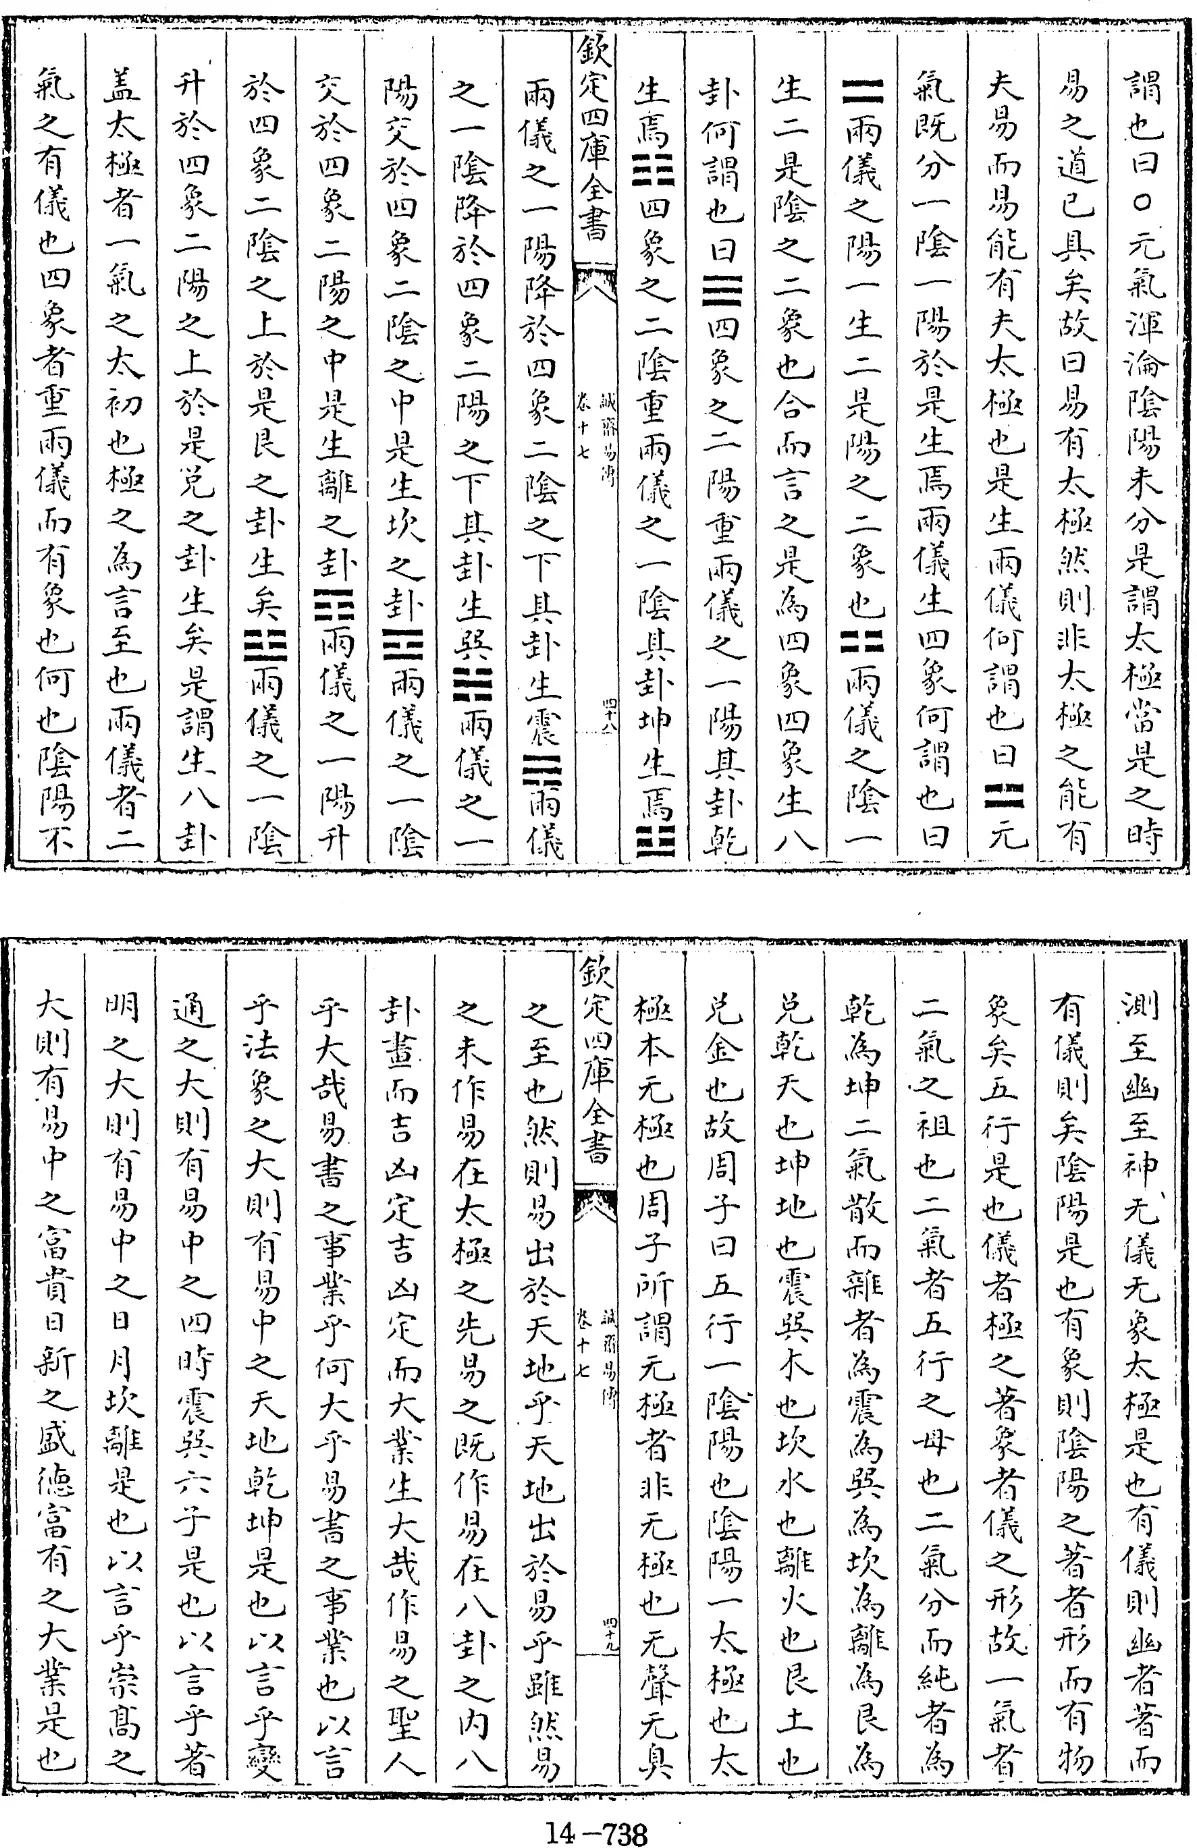 謂也曰○元氣渾淪陰陽未分是謂太極當是之時
易之道已具矣故曰易有太極然則非太極之能有
夫易而易能有夫太極也是生兩儀何謂也曰⚌元
氣既分一陰一陽於是生焉兩儀生四象何謂也曰
⚌兩儀之陽一生二是陽之二象也⚏兩儀之陰一
生二是陰之二象也合而言之是為四象四象生八
卦何謂也曰☰四象之二陽重兩儀之一陽其卦乾
生焉☷四象之二陰重兩儀之一陰其卦坤生焉☳
欽定四庫全書
誠齋易傳
卷十七
四十八
兩儀之一陽降於四象二陰之下其卦生震☴兩儀
之一陰降於四象二陽之下其卦生巽☵兩儀之一
陽交於四象二陰之中是生坎之卦☲兩儀之一陰
交於四象二陽之中是生離之卦☶兩儀之一陽升
於四象二陰之上於是艮之卦生矣☱兩儀之一陰
升於四象二陽之上於是兌之卦生矣是謂生八卦
盖太極者一氣之太初也極之為言至也兩儀者二
氣之有儀也四象者重兩儀而有象也何也陰陽不
測至幽至神无儀无象太極是也有儀則幽者著而
有儀則矣陰陽是也有象則陰陽之著者形而有物
象矣五行是也儀者極之著象者儀之形故一氣者
二氣之祖也二氣者五行之母也二氣分而純者為
乾為坤二氣散而雜者為震為巽為坎為離為艮為
兌乾天也坤地也震巽木也坎水也離火也艮土也
兌金也故周子曰五行一陰陽也陰陽一太極也太
極本无極也周子所謂无極者非无極也无聲无臭
欽定四庫全書
誠齋易傳
卷十七
四十九
之至也然則易出於天地乎天地出於易乎雖然易
之未作易在太極之先易之既作易在八卦之内八
卦畫而吉凶定吉凶定而大業生大哉作易之聖人
乎大哉易書之事業乎何大乎易書之事業也以言
乎法象之大則有易中之天地乾坤是也以言乎變
通之大則有易中之四時震巽六子是也以言乎著
明之大則有易中之日月坎離是也以言乎崇髙之
大則有易中之富貴日新之盛德富有之大業是也
14-738